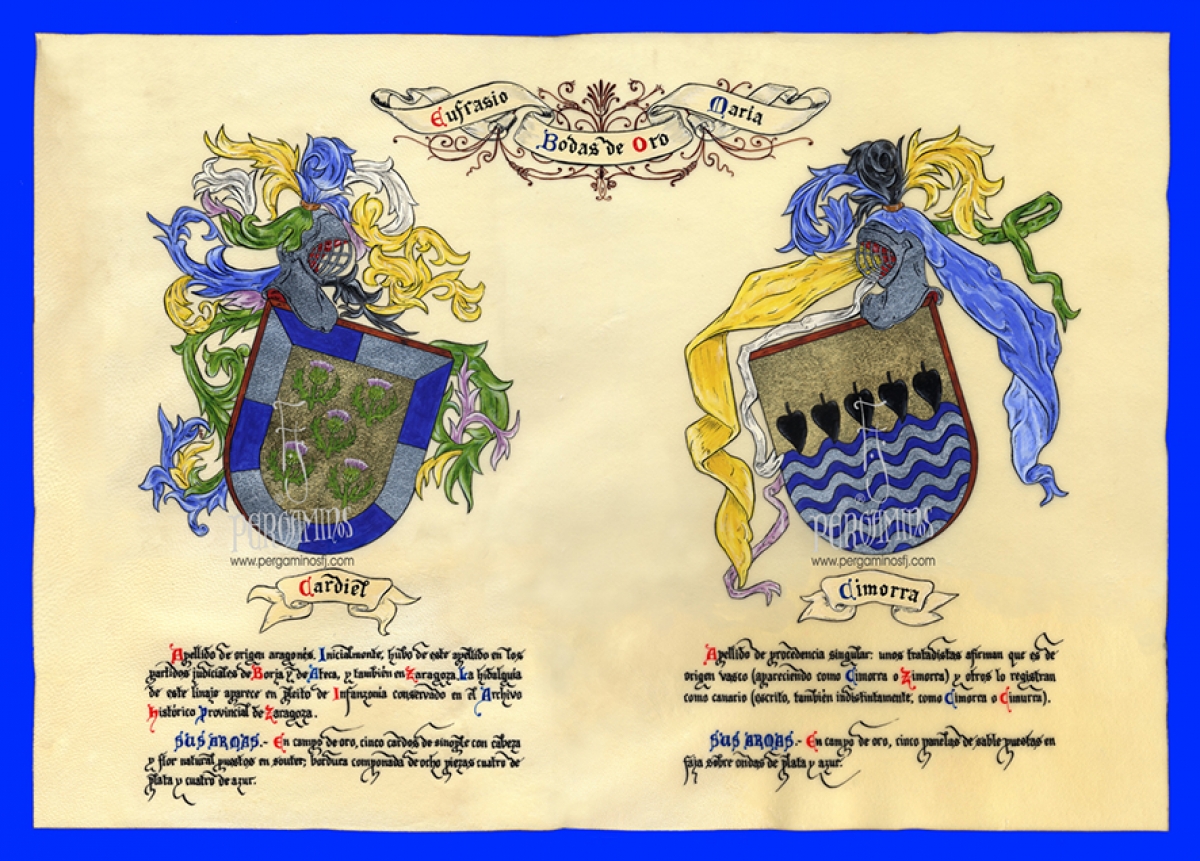 Eufrasio
Maria
Bodas de Oro
PERGAMINOS
www.pergaminosfj.com
PERGAMINOS
www.pergaminosfj.com
Cardiel
Cimorra
Apellido de origen aragonés. Inicialmente, hubo de este apellido en los
partidos judiciales de Borja y de Ateca, y también en Zaragoza. La hidalguía
de este linaje aparece en Pleito de Infanzonía conservado en el Archivo
Histórico Provincial de Zaragoza.
SUS ARMAS.- En campo de oro, cinco cardos de sinople con cabeza
y flor natural puestos en souter; bordura componada de ocho piezas cuatro de
plata y cuatro de azur.
Apellido de procedencia singular: unos tratadistas afirman que es de
origen vasco (apareciendo como Cimorra o Zimorra) y otros lo registran
como canario (escrito, también indistintamente, como Cimorra o Cimurra).
SUS ARMAS.- En campo de oro, cinco panelas de sable puestas en
faja sobre ondas de plata y azur.